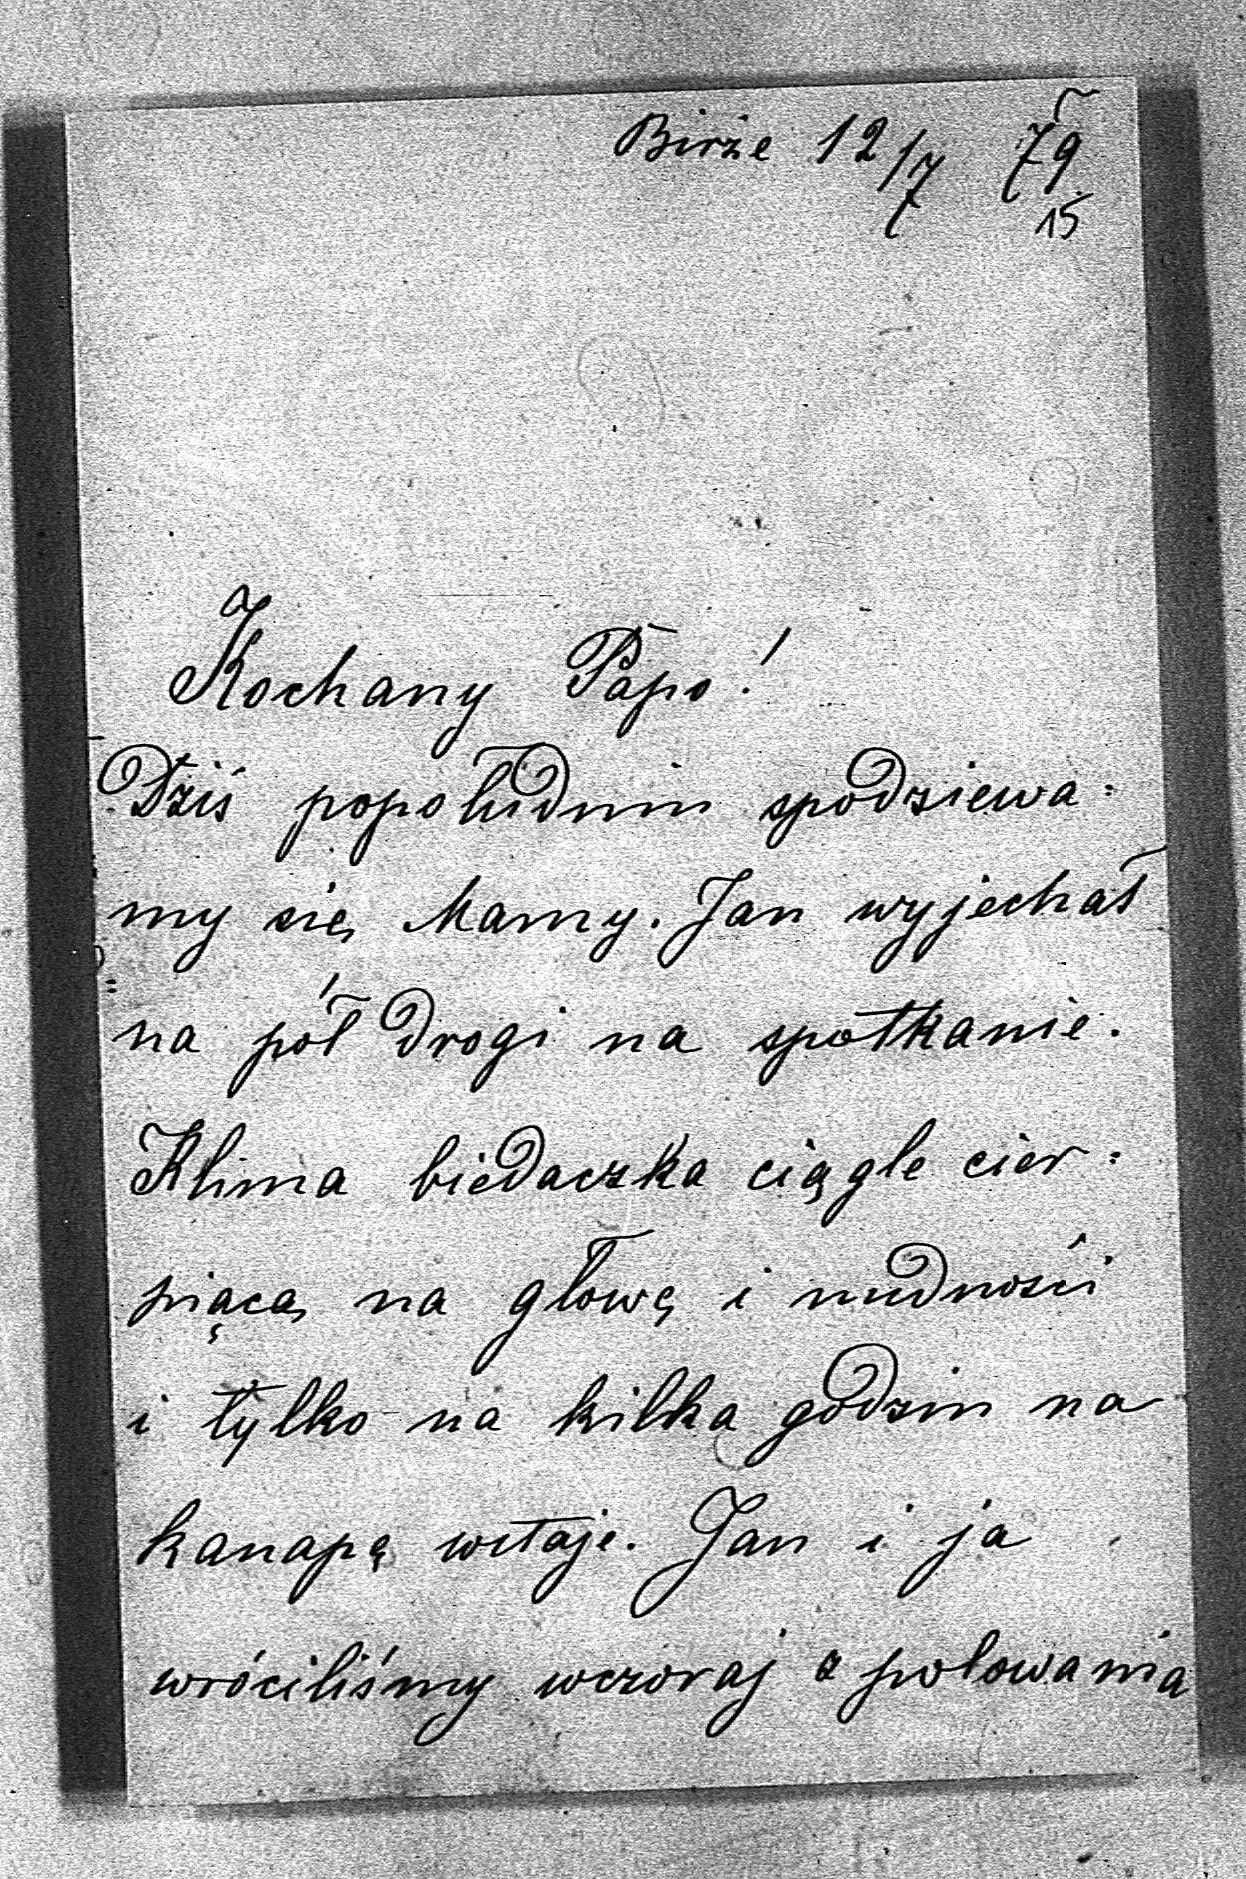 Birże 12/7 79
15
Kochany Papo!
Dziś popołudniu spodziewa:
my się Mamy. Jan wyjechał
na pół drogi na spotkanie.
Klima biedaczka ciągle cier:
piąca na głowę i nudności
i tylko na kilka godzin na
kanapę wstaje. Jan i ja
wróciliśmy wczoraj z polowania